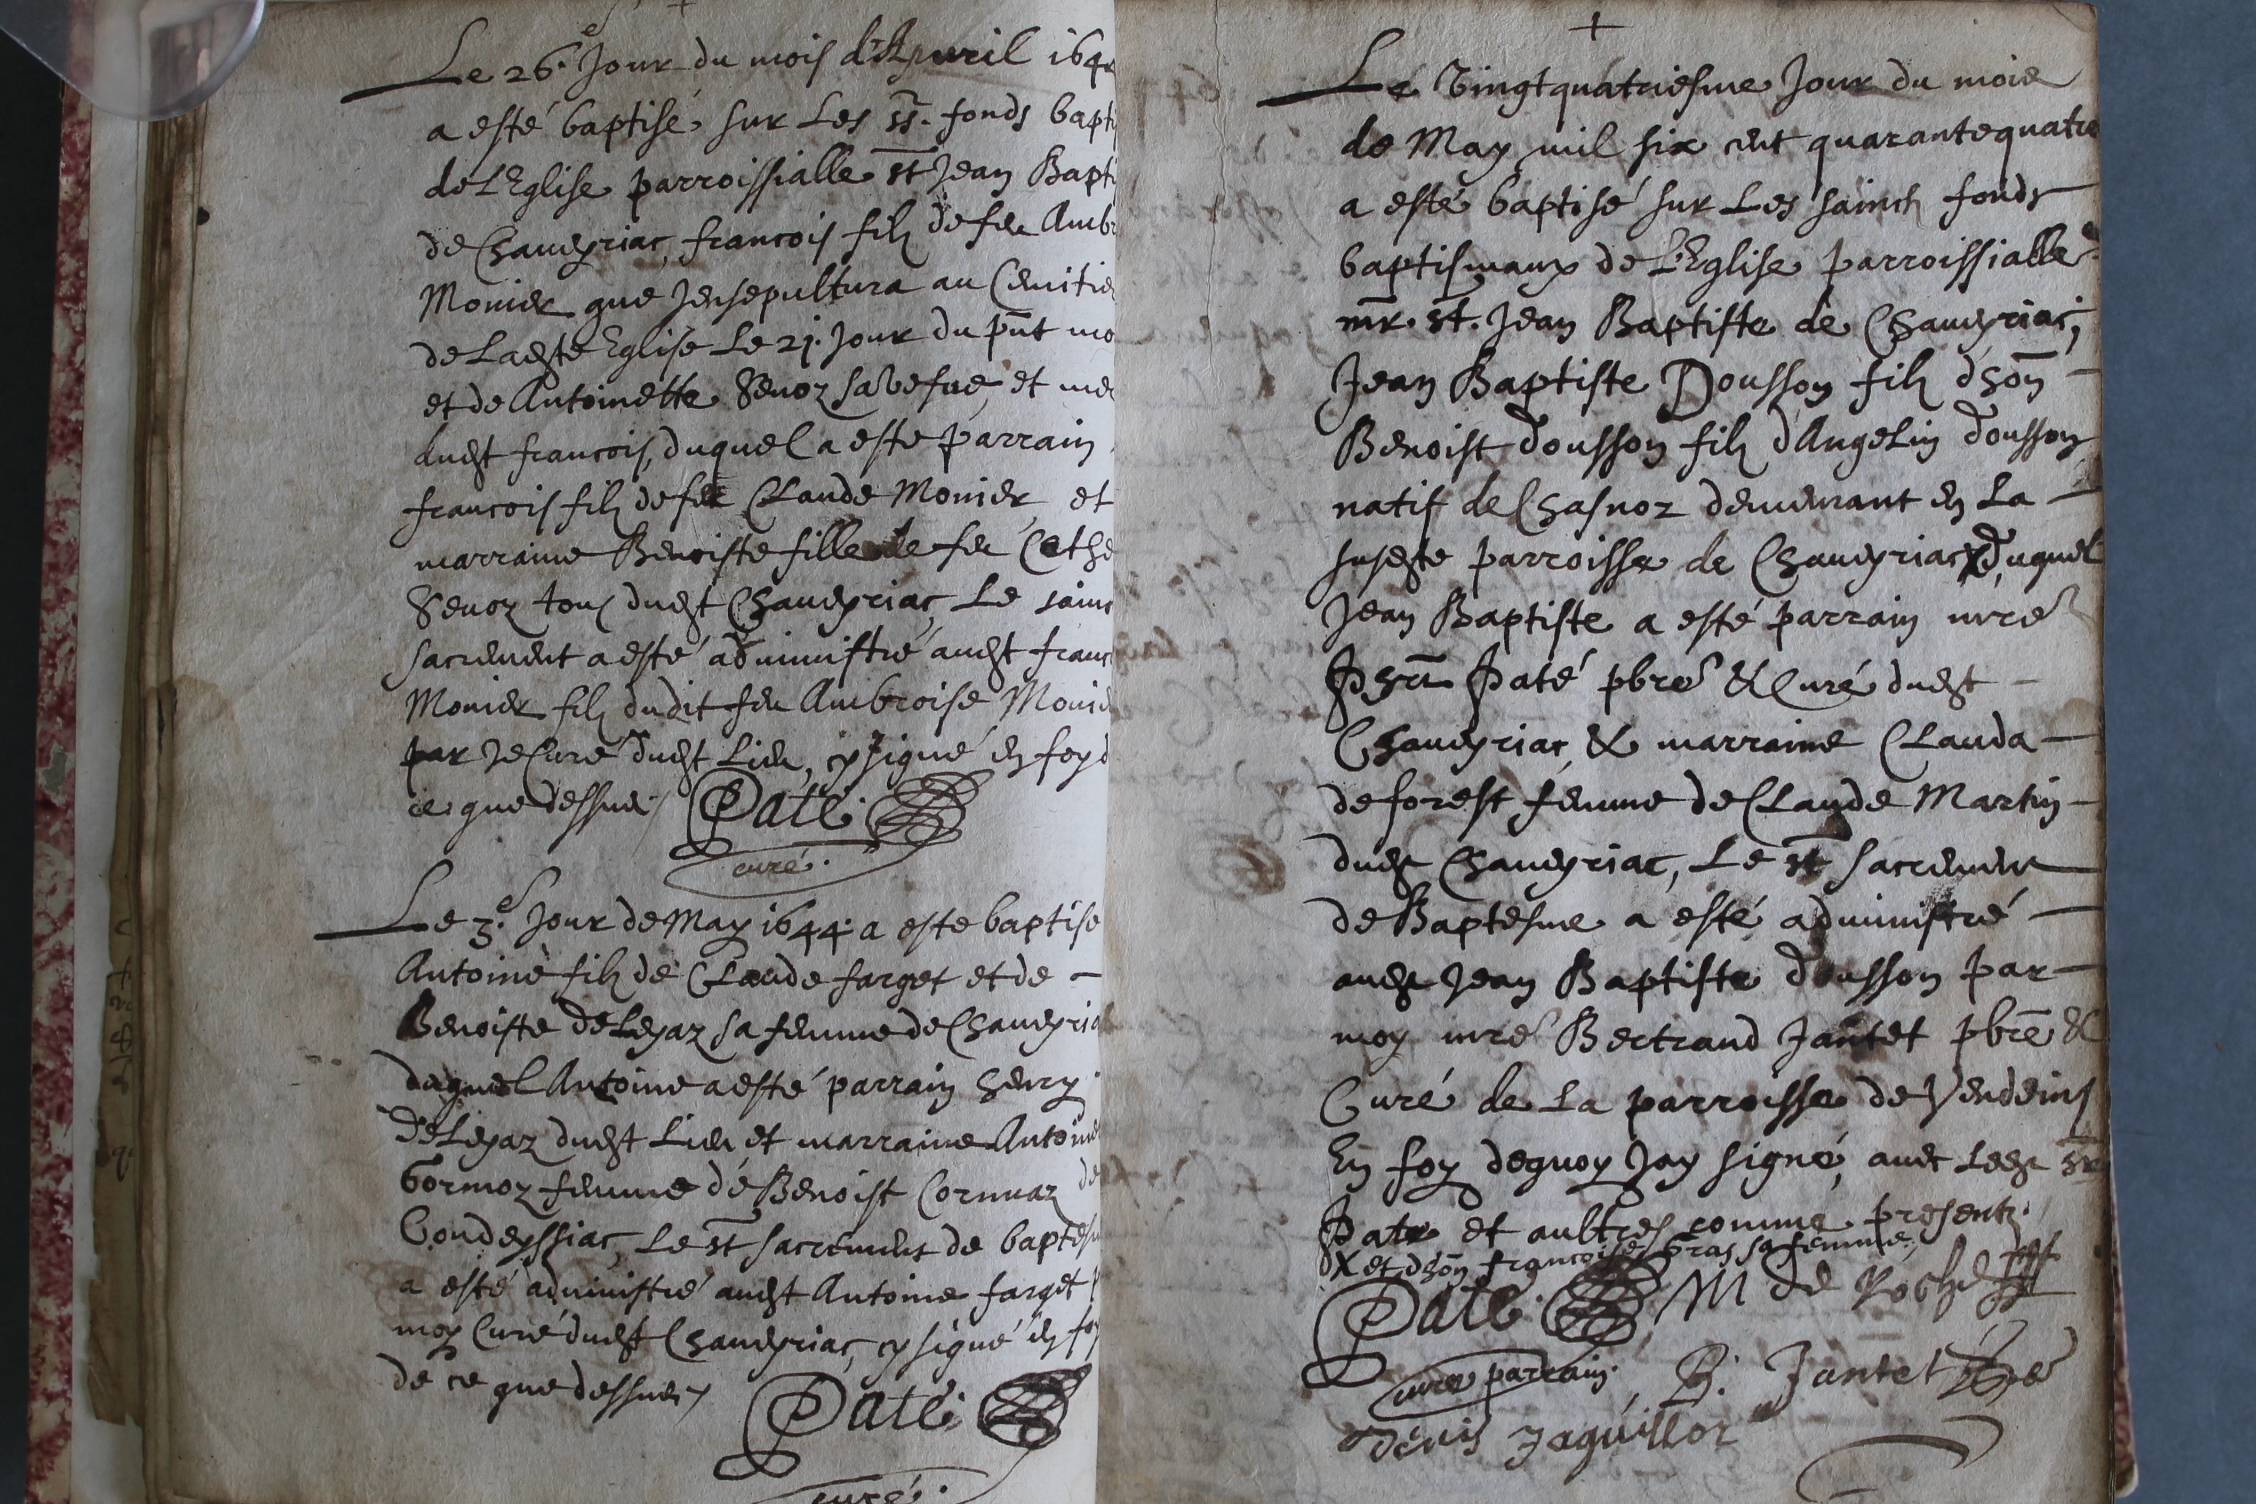 Le 26.e Jour du mois d'Apvril 164
a esté baptisé sur Les ss. fonds bapt
de L'Eglise parroissialle st Jean Bapt
de Chaveyriac, francois filz de feu Amb
Monier que J'ensepultura au Cemitie
de Ladste Eglise Le 21. Jour du pnt mo
et de Antoinette Sevoz sa vefue, et me
dudst francois, duquel a este parrain
francois filz de feu Claude Monier et
marraine Benoiste fille de feu Cathe
Sevoz tous dudst Chaveyriac, Le sainc
sacrement a esté administré audst franc
Monier filz dudit feu Ambroise Monie
par Je Curé dudst Lieu, cy signé en foy d
ce que dessus /
Paté.
curé.
Le 3.e Jour de May 1644. a este baptise
Antoine filz de Claude farget et de -
Benoiste de Leyaz sa femme de Chaveyria
duquel Antoine a esté parrain henry
de Leyaz dudst Lieu et marraine Antoine
Gormoz femme de Benoist Cornuaz de
Condeyssiac, Le st sacrement de baptesm
a esté administré audst Antoine farget p
moy Curé dudst Chaveyriac, cy signé en foy
de ce que dessus /
Paté.
curé.
+
Le Vingtquatriesme Jour du mois
de May mil six cent quarantequatre
a esté baptisé sur Les saincts fonds
baptismaux de L'Eglise parroissialle
mr. st. Jean Baptiste de Chaveyriac,
Jean Baptiste Dousson filz d'hon -
Benoist dousson filz d'Angelin dousson
natif de Chasnoz demeurant en La -
susdste parroisse de Chaveyriac X duquel
Jean Baptiste a esté parrain mre
Paté pbre & Curé dudst -
Chaveyriac, & marraine Clauda -
deforest femme de Claude Martin -
dudst Chaveyriac, Le st sacrement
de Baptesme a esté administré -
audst Jean Baptiste dousson par -
moy mre Bertrand Jantet pbre &
Curé de La parroisse de Vendeins
En foy dequoy Jay signé, avec Ledst sr
Paté et aultres comme presentz.
X et d'hon francoise Gras sa femme.
Paté. M de Roche
curé parrain. B. Jantet pbre
Denis Jaquillot